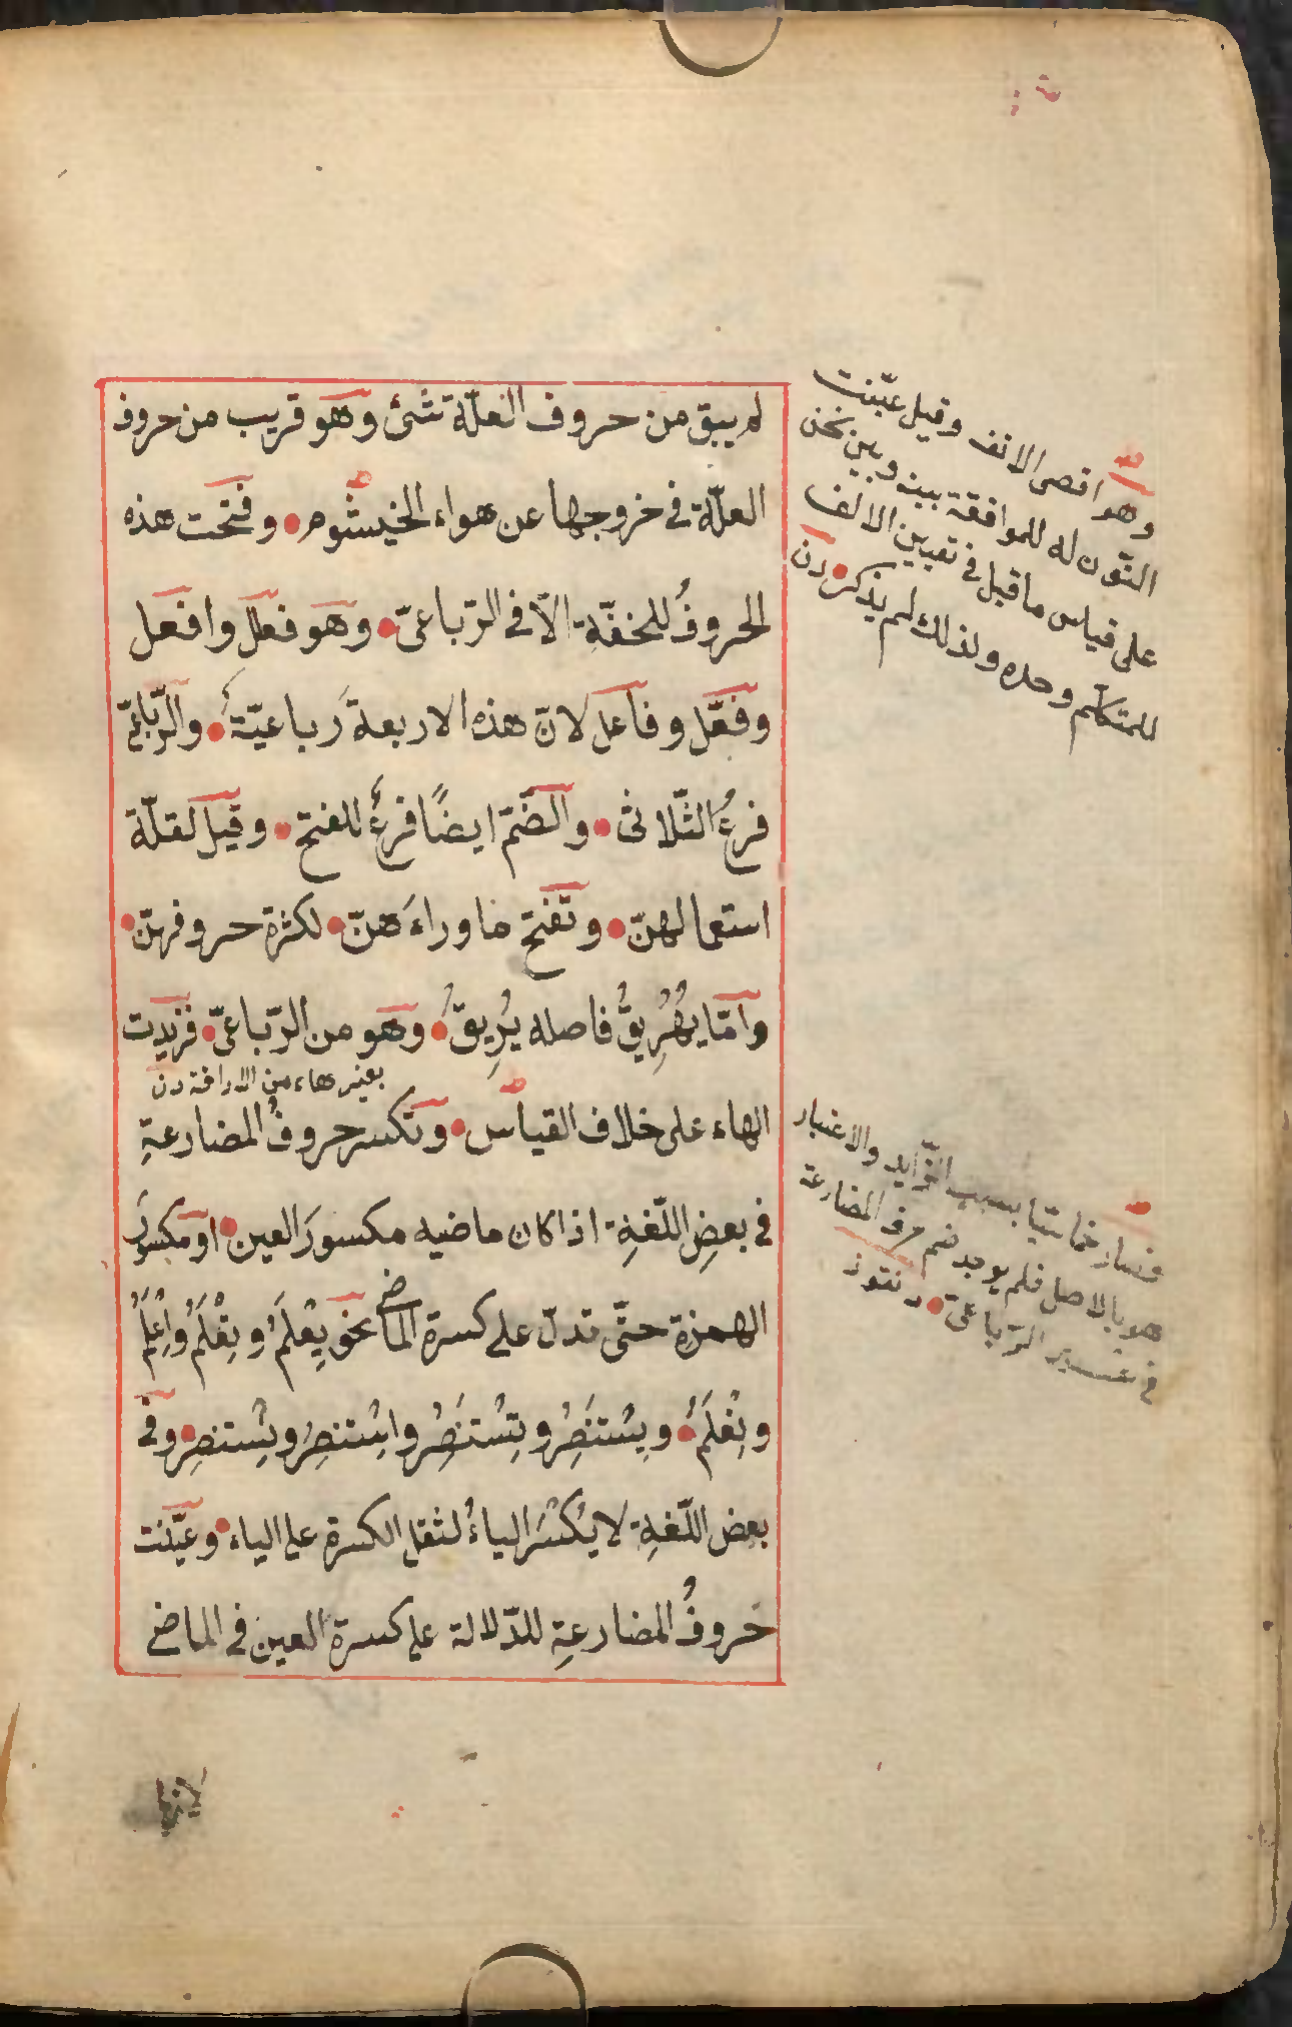 لم يبق من حروف العلّة شئ وهو قريب من حروف
العلّة في خروجها عن هواء الخيشوم وفتحت هذه
الحروفُ للخفّةِ الّا في الرّباعىّ وهو فعلل وافعل
وفعّل وفاعل لانّ هذه الاربعةَ رباعيّةٌ والرّباعىّ
فرعُ الثّلاثى والضّمّ ايضًا فرعٌ للفتح وقيل لقلّة
استعمالهنّ وتفتح ماوراءَهنّ لكثرة حروفهنّ
وامّا يُهْرِيقُ فاصله يُرِيقُ وهو من الرّباعىّ فزيدت
بغير هاء من الاراقة
الهاء على خلاف القياس وتكسر حروفُ المضارعةِ
في بعضِ اللّغةِ اذا كان ماضيه مكسورَ العين او مكسورَ
الهمزة حتّى تدلّ على كسرة الماضى نحو يِعْلَمُ وتِعْلَمُ واِعْلَمُ
ونِعْلَمُ ويِسْتَنْصِرُ وتِسْتَنْصِرُ واِسْتنصِرُ ونِستنصِرُ وفى
بعض اللّغةِ لا يُكْسَرُ الياءُ لثقل الكسرة على الياء وعيّنت
حروفُ المضارعةِ للدّلالة على كسرة العين فى الماضى
لانها
وهو اقصى الانف وقيل عيّنت
النّون له للموافقة بينه وبين نحن
على قياس ما قيل فى تعيين الالف
للمتكلّم وحده ولذلك لم يذكر
فصار خماسيّا بسبب الزّايد والاعتبار
هو بالاصل فلم يوجد ضم حرف المضارعة
فى غير الرّباعىّ